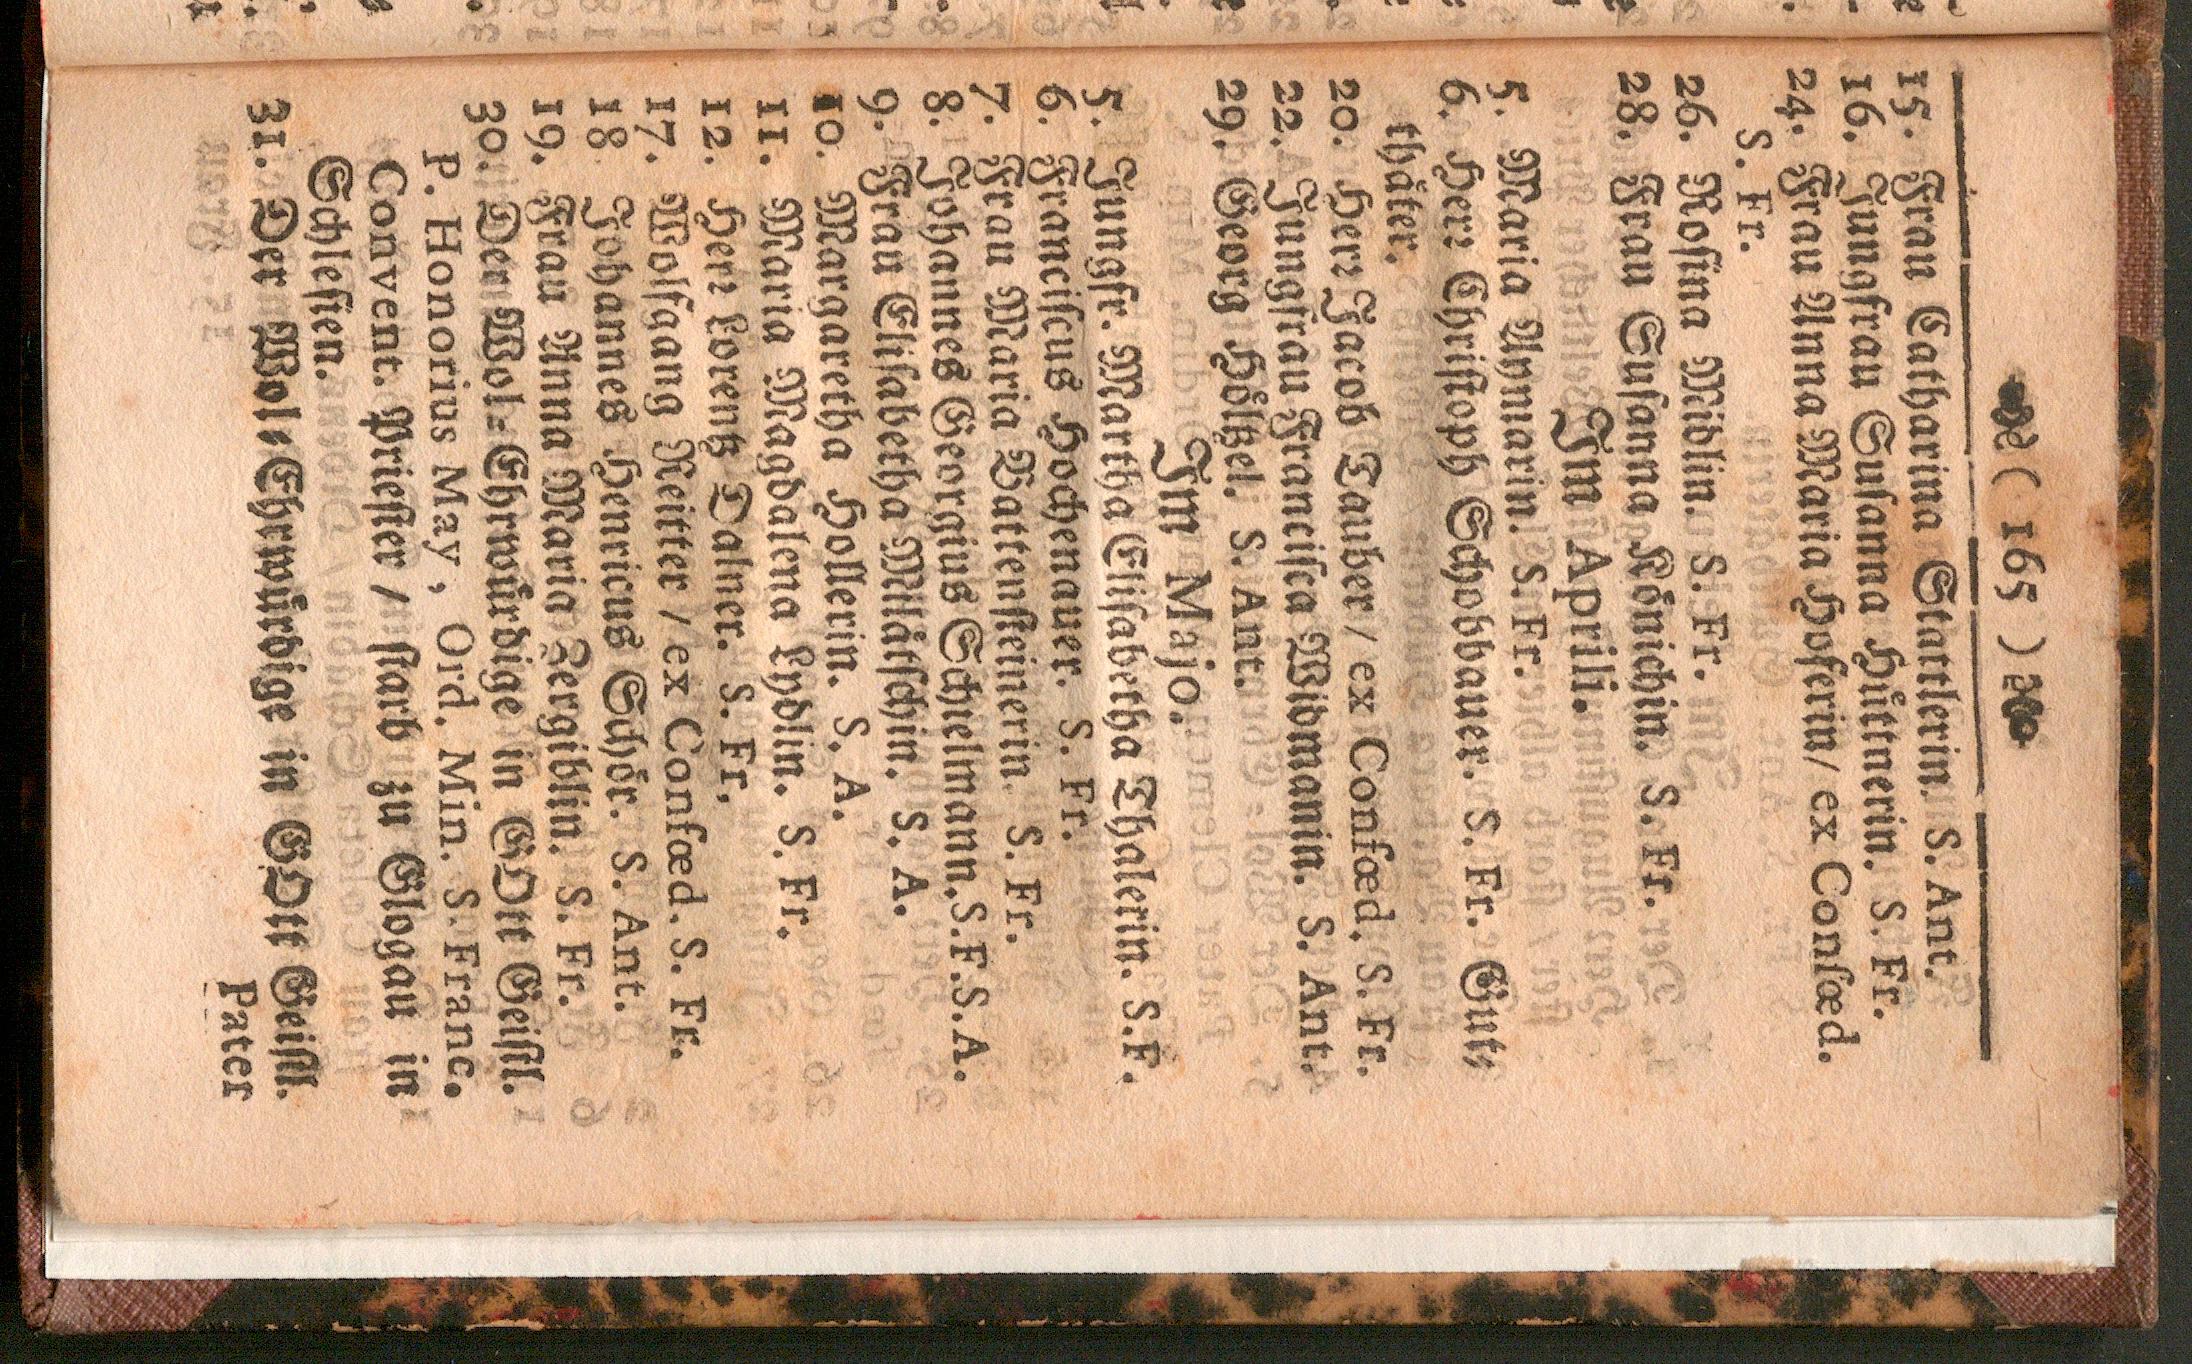 ( 165 )
15. Frau Catharina Stattlerin. S. Ant.
16. Jungfrau Susanna Hüttnerin. S. Fr.
24. Frau Anna Maria Hoferin / ex Confœd.
S. Fr.
26. Rosina Miblin. S. Fr.
28. Frau Susanna Königin. S. Fr.
Im Aprili.
5. Maria Annnarin. S. Fr.
6. Herr Christoph Schobbauer. S. Fr. Gut-
thäter.
20. Herr Jacob Tauber / ex Confœd. S. Fr.
22. Jungfrau Francisca Widmanin. S. Ant.
29. Georg Hölßel. S. Ant.
Im Majo.
5. Jungfr. Martha Elisabetha Thalerin. S. F.
6. Franciscus Hochenauer. S. Fr.
7. Frau Maria Battensteinerin. S. Fr.
8. Johannes Georgius Schuelmann. S. F. S. A.
9. Frau Elisabetha Milätschin. S. A.
10. Margaretha Hollerin. S. A.
11. Maria Magdalena Lydlin. S. Fr.
12. Herr Lorentz Dalner. S. Fr.
17. Wolfgang Reitter / ex Confœd. S. Fr.
18. Johannes Henricus Schör. S. Ant.
19. Frau Anna Maria Zergiblin. S. Fr.
30. Der Wol-Ehrwürdige in GOtt Geistl.
P. Honorius May, Ord. Min. S. Franc.
Convent. Priester / starb zu Glogau in
Schlesien.
31. Der Wol-Ehrwürdige in GOtt Geistl.
Pater